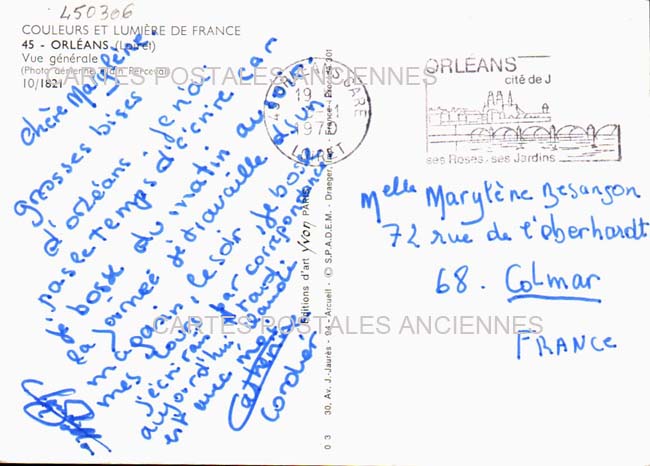 450306
COULEURS ET LUMIÈRE DE FRANCE
45 - ORLÉANS (Loiret)
Vue générale
(Photo aérienne Alain Perceval)
10/1821
CARTES POSTALES ANCIENNES
Chère Marylène,
grosses bises
d'orléans. Je n'ai
pas le temps d'écrire car
je bosse du matin au soir.
La journée je travaille dans un
magasin, le soir je bosse
mes cours par correspondance
j'écrirai + tard,
aujourd'hui
est avec
Catherine
Cordier
03 30, Av. J.-Jaurès - 94 - Arcueil - © S.P.A.D.E.M. - Draeger, - France
Editions d'art Yvon PARIS
45 ORLEANS GARE
19
1970
LOIRET
ORLÉANS
cité de J
ses Roses, ses Jardins
Melle Marylène Besançon
72 rue de l'oberhardt
68. Colmar
CARTES POSTALES ANCIENNES
FRANCE